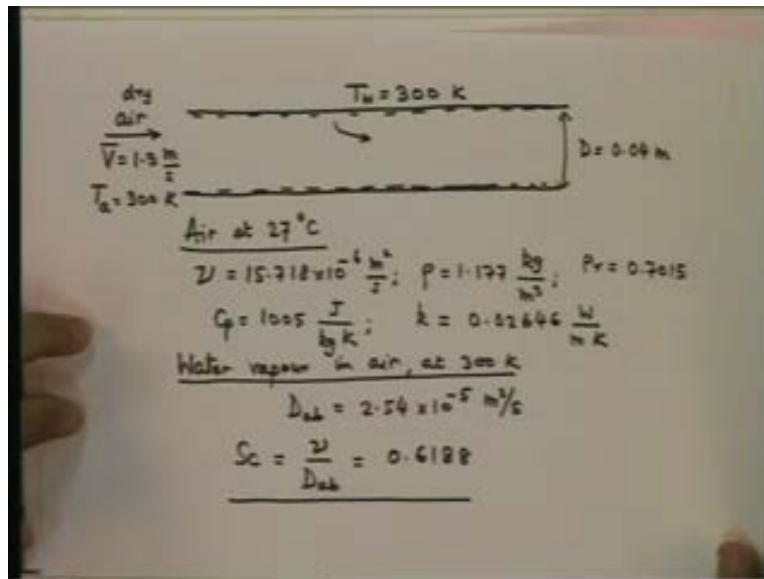 dry
air
T_w = 300 K
V̄ = 1.3 m/s
D = 0.04 m
T_a = 300 K
Air at 27°C
ν = 15.718 x 10⁻⁶ m²/s; ρ = 1.177 kg/m³; Pr = 0.7015
Cp = 1005 J/kg K; k = 0.02646 W/m K
Water vapour in air, at 300 K
D_ab = 2.54 x 10⁻⁵ m²/s
Sc = ν/D_ab = 0.6188